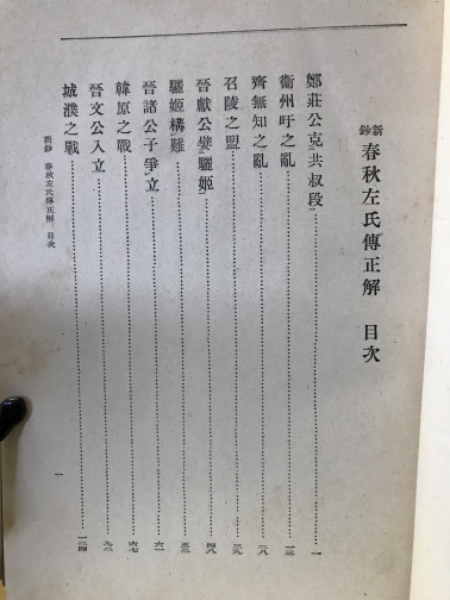 新鈔 春秋左氏傳正解 目次
鄭莊公克共叔段 一
衞州吁之亂 一三
齊無知之亂 二八
召陵之盟 三九
晉獻公嬖驪姬 四八
驪姬構難 五三
晉諸公子爭立 六一
韓原之戰 六七
晉文公入立 九三
城濮之戰 一二四
新鈔 春秋左氏傳正解 目次
一